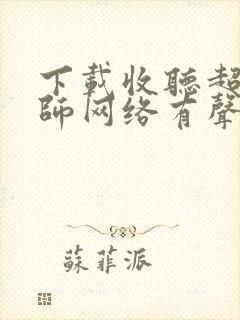 下載收聽超
師网络有聲
蘇菲派